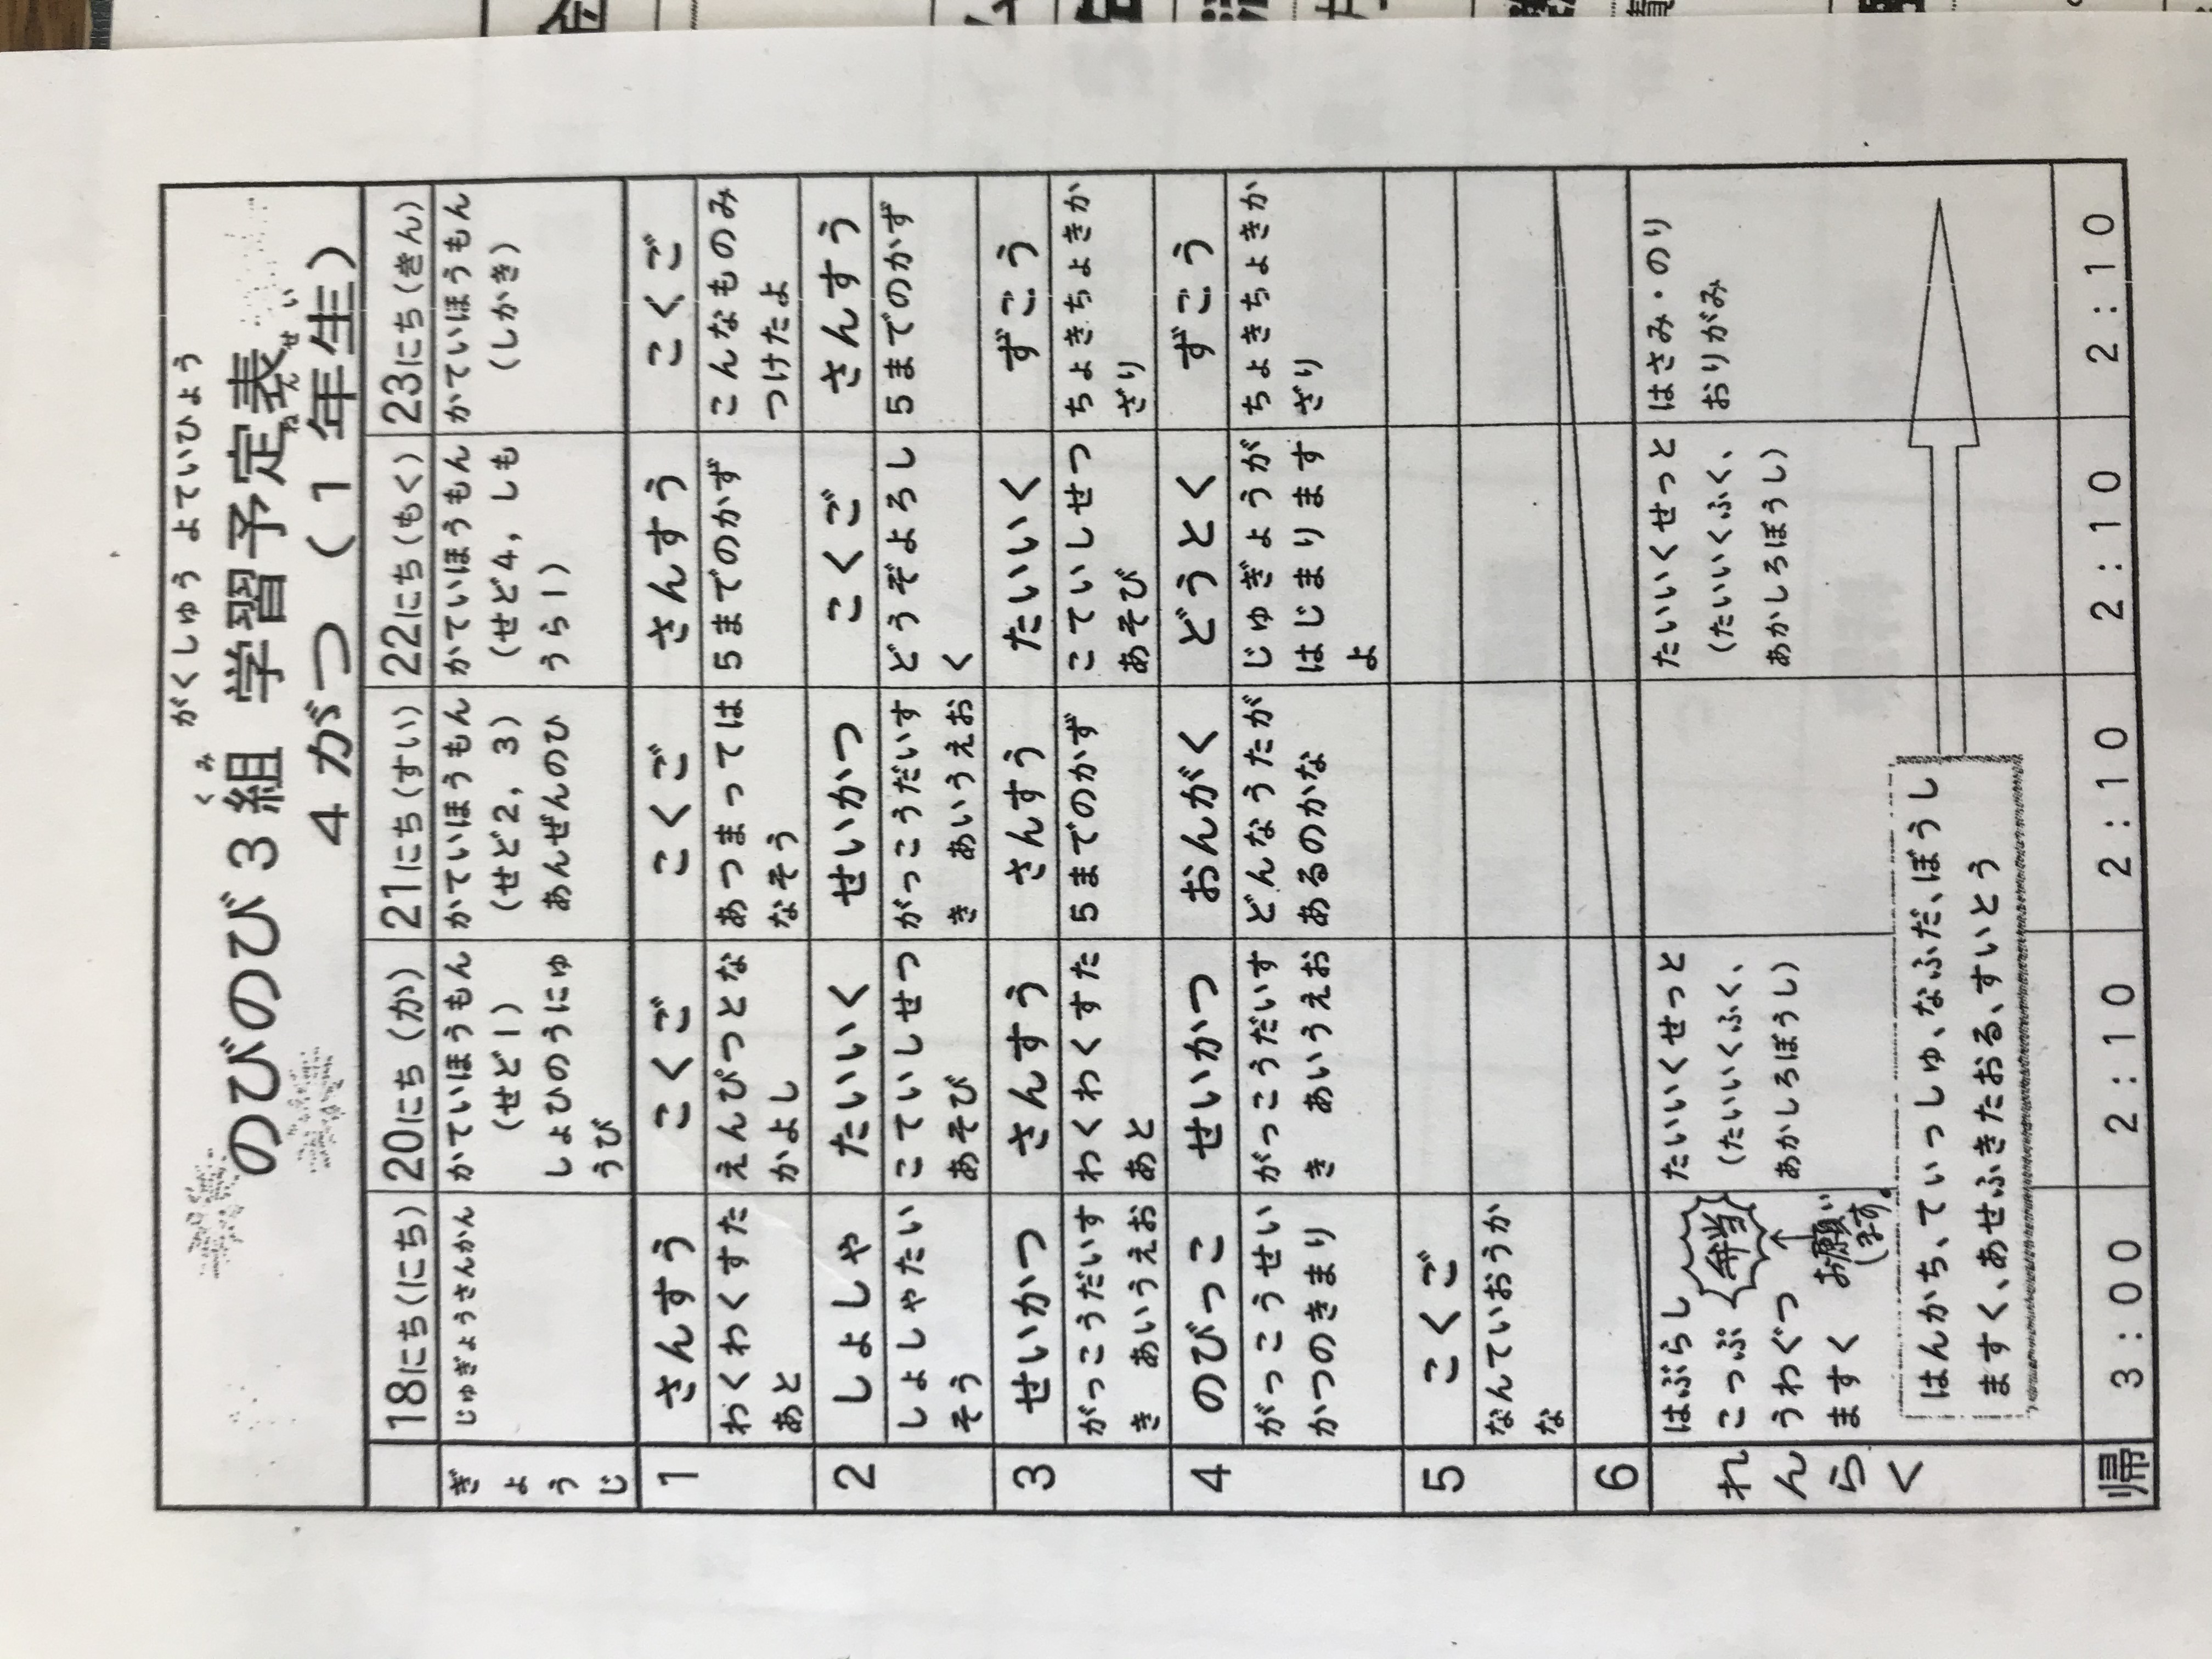 がくしゅう よていひょう
のびのび３組 学習予定表
くみ
４がつ （１年生）
ねんせい
18にち(にち)
20にち (か)
21にち(すい)
22にち(もく)
23にち(きん)
ぎょうじ
じゅぎょうさんかん
かていほうもん
（せど１）
しょひのうにゅ
うび
かていほうもん
（せど２，３）
あんぜんのひ
かていほうもん
（せど４，しも
うら１）
かていほうもん
（しかき）
1
さんすう
こくご
こくご
さんすう
こくご
わくわくすた
あと
えんぴつとな
かよし
あつまっては
なそう
５までのかず
こんなものみ
つけたよ
2
しょしゃ
たいいく
せいかつ
こくご
さんすう
しょしゃたい
そう
こていしせつ
あそび
がっこうだいす
き　あいうえお
どうぞよろし
く
５までのかず
3
せいかつ
さんすう
さんすう
たいいく
ずこう
がっこうだいす
き　あいうえお
わくわくすた
あと
５までのかず
こていしせつ
あそび
ちょきちょきか
ざり
4
のびっこ
せいかつ
おんがく
どうとく
ずこう
がっこうせい
かつのきまり
がっこうだいす
き　あいうえお
どんなうたが
あるのかな
じゅぎょうが
はじまります
よ
ちょきちょきか
ざり
5
こくご
なんていおうか
な
6
れんらく
はぶらし
こっぷ
うわぐつ
ますく
弁当
↑
お願い
します。
たいいくせっと
（たいいくふく、
あかしろぼうし）
たいいくせっと
（たいいくふく、
あかしろぼうし）
はさみ・のり
おりがみ
はんかち、ていっしゅ、なふだ、ぼうし
ますく、あせふきたおる、すいとう
帰
3：00
2：10
2：10
2：10
2：10